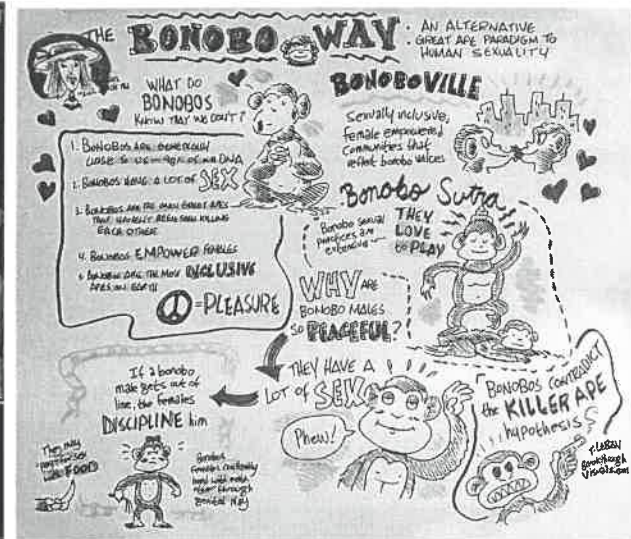 THE BONOBO WAY
: AN ALTERNATIVE
GREAT APE PARADIGM TO
HUMAN SEXUALITY
WHAT DO
BONOBOS
KNOW THAT WE DON'T?
1. BONOBOS ARE GENETICALLY
CLOSE TO US DNA
2. BONOBOS HAVE A LOT OF SEX
3. BONOBOS ARE THE ONLY GREAT APES
THAT HAVEN'T BEEN SEEN KILLING
EACH OTHER
4. BONOBOS EMPOWER FEMALES
5. BONOBOS ARE THE MOST INCLUSIVE
APES ON EARTH
=PLEASURE
BONOBOVILLE
Sexually inclusive,
female empowered
communities that
reflect bonobo values
Bonobo Sutra
Bonobo sexual
practices are
extensive
THEY
LOVE
to PLAY
WHY ARE
BONOBO MALES
SO PEACEFUL?
THEY HAVE A
LOT of SEX
Phew!
If a bonobo
male gets out of
line, the females
DISCIPLINE him
They may
sex
with FOOD
Bonobo
females
bond with each
other through
BONOBOS CONTRADICT
the KILLER APE
hypothesis